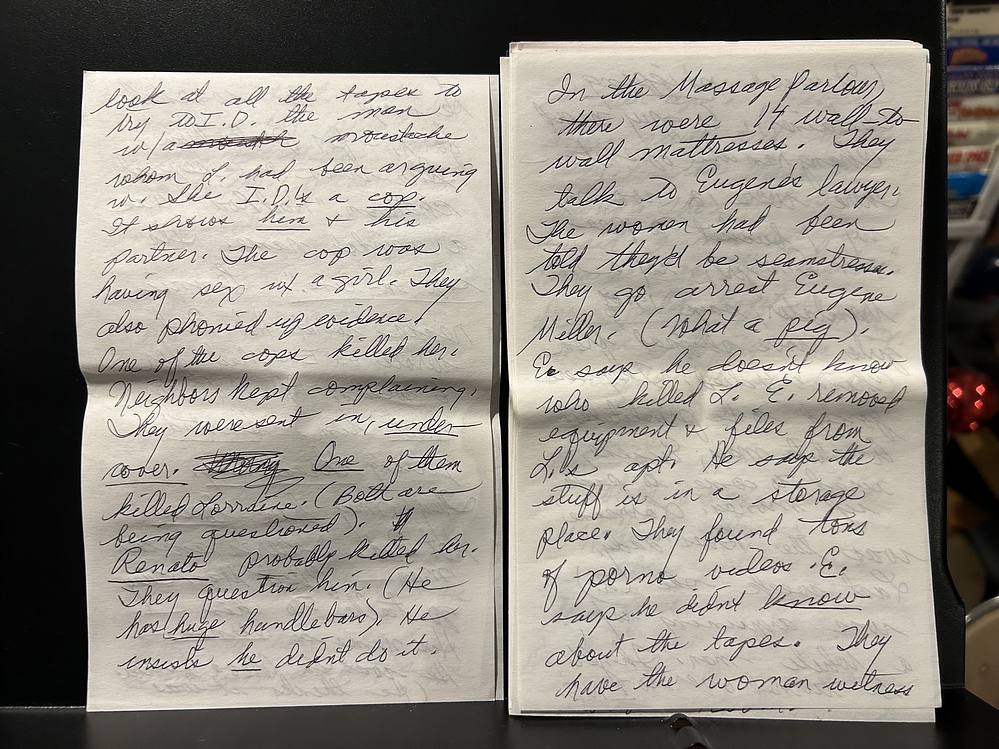 look at all the tapes to
try to I.D. the man
w/a moustache
whom L. had been arguing
w. She I.D.'s a cop.
It shows him & his
partner. The cop was
having sex w/ a girl. They
also phonied up evidence.
One of the cops killed her.
Neighbors kept complaining.
They were sent in, under-
cover. One of them
killed Lorraine. (Both are
being questioned).
Renato probably killed her.
They question him. (He
has huge handlebars). He
insists he didn't do it.
In the Massage Parlour,
there were 14 wall-to
wall mattresses. They
talk to Eugene's lawyer.
The women had been
told they'd be seamstresses.
They go arrest Eugene
Miller. (What a pig).
E. says he doesn't know
who killed L. E. removed
equipment & files from
L.'s apt. He says the
stuff is in a storage
place. They found tons
of porno videos. E.
says he didn't know
about the tapes. They
have the woman witness